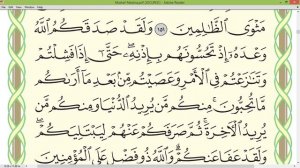 مَثْوَى ٱلظَّٰلِمِينَ ۝١٥١ وَلَقَدْ صَدَقَكُمُ ٱللَّهُ
وَعْدَهُۥٓ إِذْ تَحُسُّونَهُم بِإِذْنِهِۦ ۖ حَتَّىٰٓ إِذَا فَشِلْتُمْ
وَتَنَٰزَعْتُمْ فِى ٱلْأَمْرِ وَعَصَيْتُم مِّنۢ بَعْدِ مَآ أَرَىٰكُم
مَّا تُحِبُّونَ ۚ مِنكُم مَّن يُرِيدُ ٱلدُّنْيَا وَمِنكُم مَّن
يُرِيدُ ٱلْءَاخِرَةَ ۚ ثُمَّ صَرَفَكُمْ عَنْهُمْ لِيَبْتَلِيَكُمْ ۖ
وَلَقَدْ عَفَا عَنكُمْ ۗ وَٱللَّهُ ذُو فَضْلٍ عَلَى ٱلْمُؤْمِنِينَ